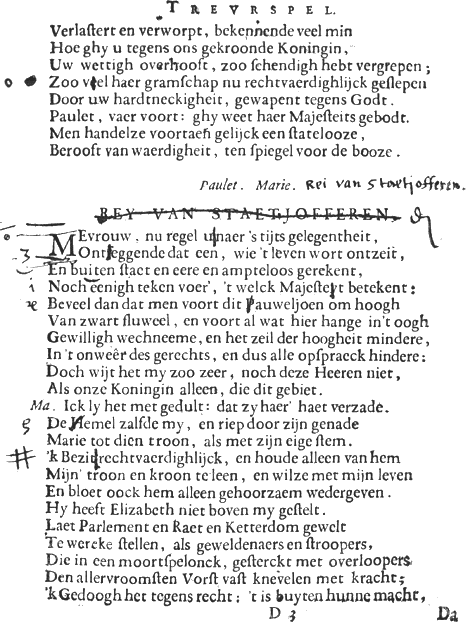 TREURSPEL.
Verlastert en verworpt, bekennende veel min
Hoe ghy u tegens ons gekroonde Koningin,
Uw wettigh overhooft, zoo schendigh hebt vergrepen;
Zoo veel haer gramschap nu rechtvaerdighlijck geslepen
Door uw hardtneckigheit, gewapent tegens Godt.
Paulet, vaer voort: ghy weet haer Majesteits gebodt.
Men handelze voortaen gelijck een statelooze,
Berooft van waerdigheit, ten spiegel voor de booze.
Paulet. Marie. Rei van Staetjofferen.
REY VAN STAETJOFFEREN.
MEvrouw, nu regel u naer 's tijts gelegentheit,
Ontzeggende dat een, wie 't leven wort ontzeit,
En buiten staet en eere en ampteloos gerekent,
Noch eenigh teken voer', 't welck Majesteyt betekent:
Beveel dan dat men voort dit Pauweljoen om hoogh
Van zwart fluweel, en voort al wat hier hange in't oogh
Gewilligh wechneeme, en het zeil der hoogheit mindere,
In 't onweêr des gerechts, en dus alle opspraeck hindere:
Doch wijt het my zoo zeer, noch deze Heeren niet,
Als onze Koningin alleen, die dit gebiet.
Ma. Ick ly het met gedult: dat zy haer' haet verzade.
De Hemel zalfde my, en riep door zijn genade
Marie tot dien troon, als met zijn eige stem.
'k Bezit rechtvaerdighlijck, en houde alleen van hem
Mijn' troon en kroon te leen, en wil ze met mijn leven
En bloet oock hem alleen gehoorzaem wedergeven.
Hy heeft Elizabeth niet boven my gestelt.
Laet Parlement en Raet en Ketterdom gewelt
Te wercke stellen, als geweldenaers en stroopers,
Die in een moortspelonck, gesterckt met overloopers
Den allervroomsten Vorst vast knevelen met kracht;
'k Gedoogh het tegens recht: 't is buyten hunne macht,
D 3 Da